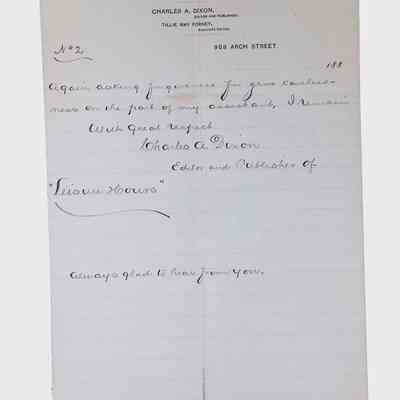 CHARLES A. DIXON,
EDITOR AND PUBLISHER.
TILLIE MAY FORNEY,
ASSOCIATE EDITOR.
908 ARCH STREET.
No 2
188
Again asking forgiveness for gross careless-
ness on the part of my assistant, I remain
With Great respect
Charles A. Dixon
Editor and Publisher of
"Leisure Hours"
Always glad to hear from you.